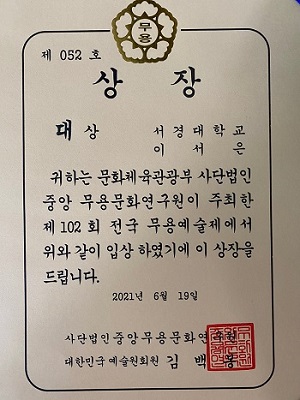 무용
제 052 호
상 장
대상 서경대학교
이서은
귀하는 문화체육관광부 사단법인
중앙 무용문화연구원이 주최한
제 102 회 전국 무용예술제에서
위와 같이 입상 하였기에 이 상장을
드립니다.
2021년 6월 19일
사단법인중앙무용문화연구원
대한민국 예술원회원 김 백 봉